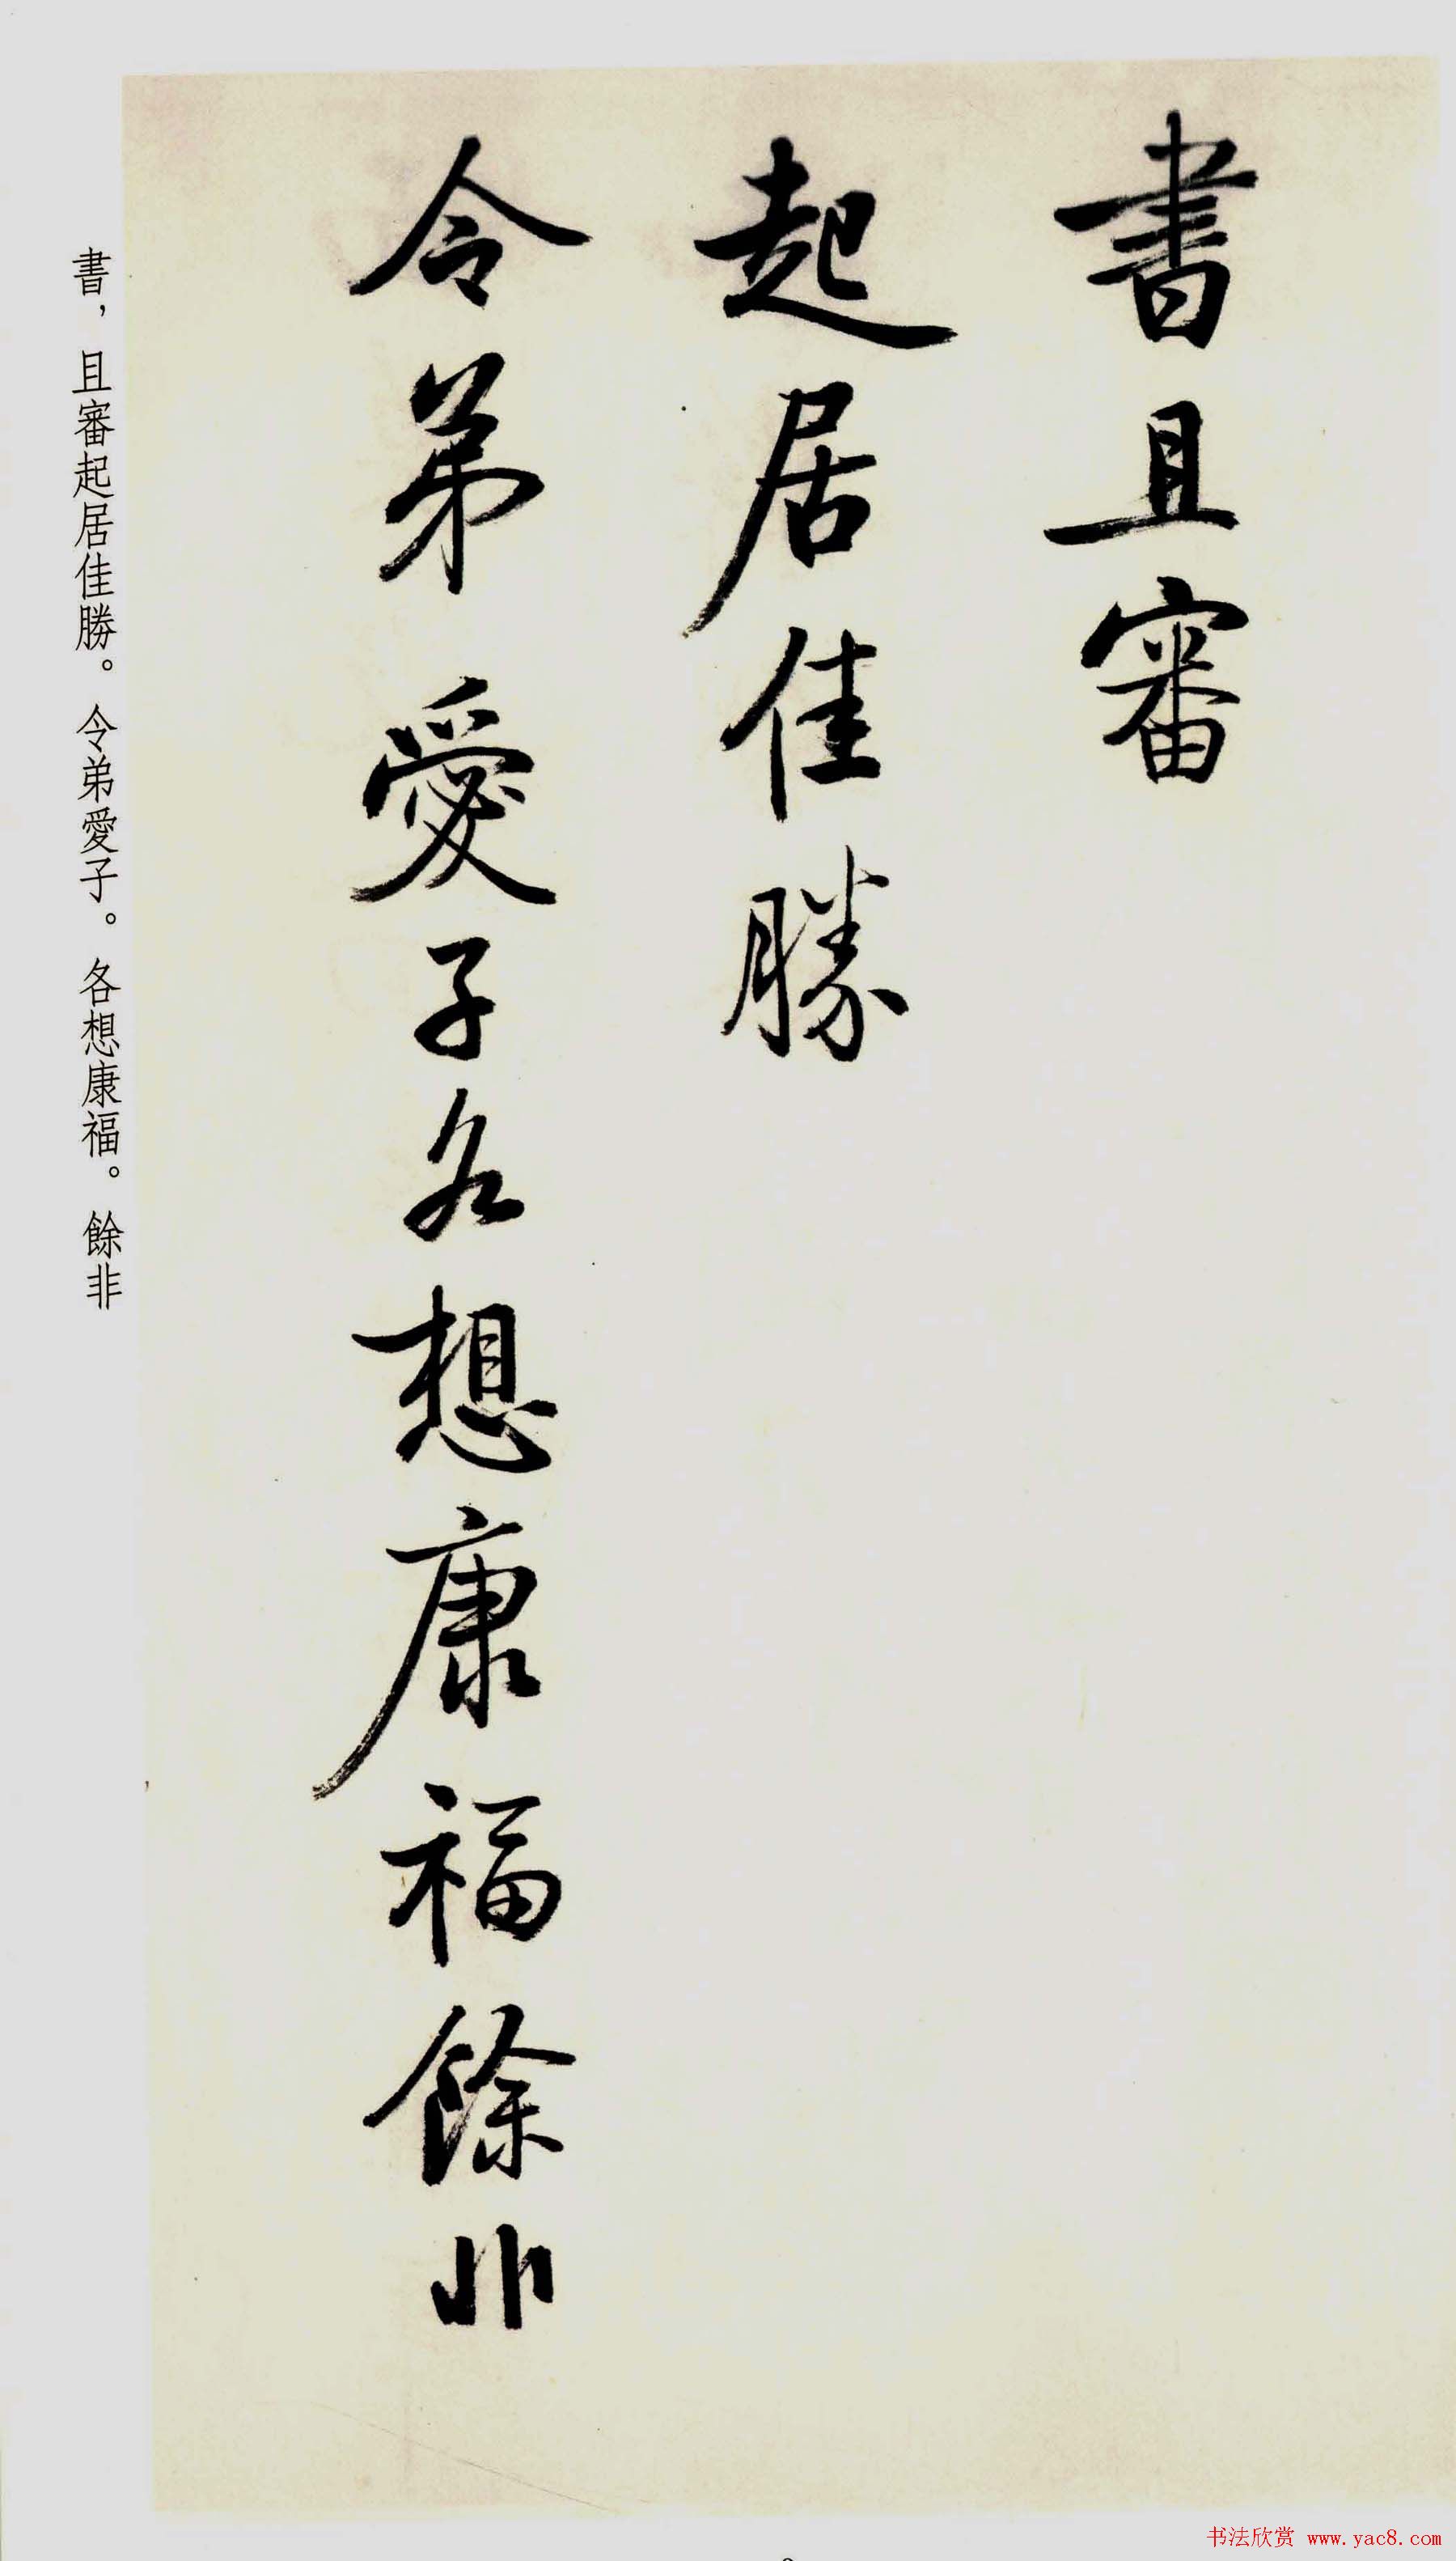 書且審
起居佳勝
令弟愛子各想康福餘非
書，且審起居佳勝。令弟愛子。各想康福。餘非
书法欣赏 www.yac8.com